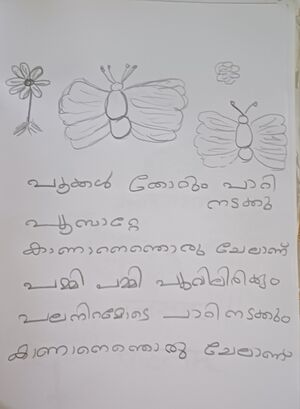 പൂക്കൾ തോറും പാറി
നടക്കു
പൂമ്പാറ്റേ
കാണാനെന്തൊരു ചേലാണ്
പമ്മി പമ്മി പൂവിലിരിക്കും
പലനിറമോടെ പാറിനടക്കും
കാണാനെന്തൊരു ചേലാണ്